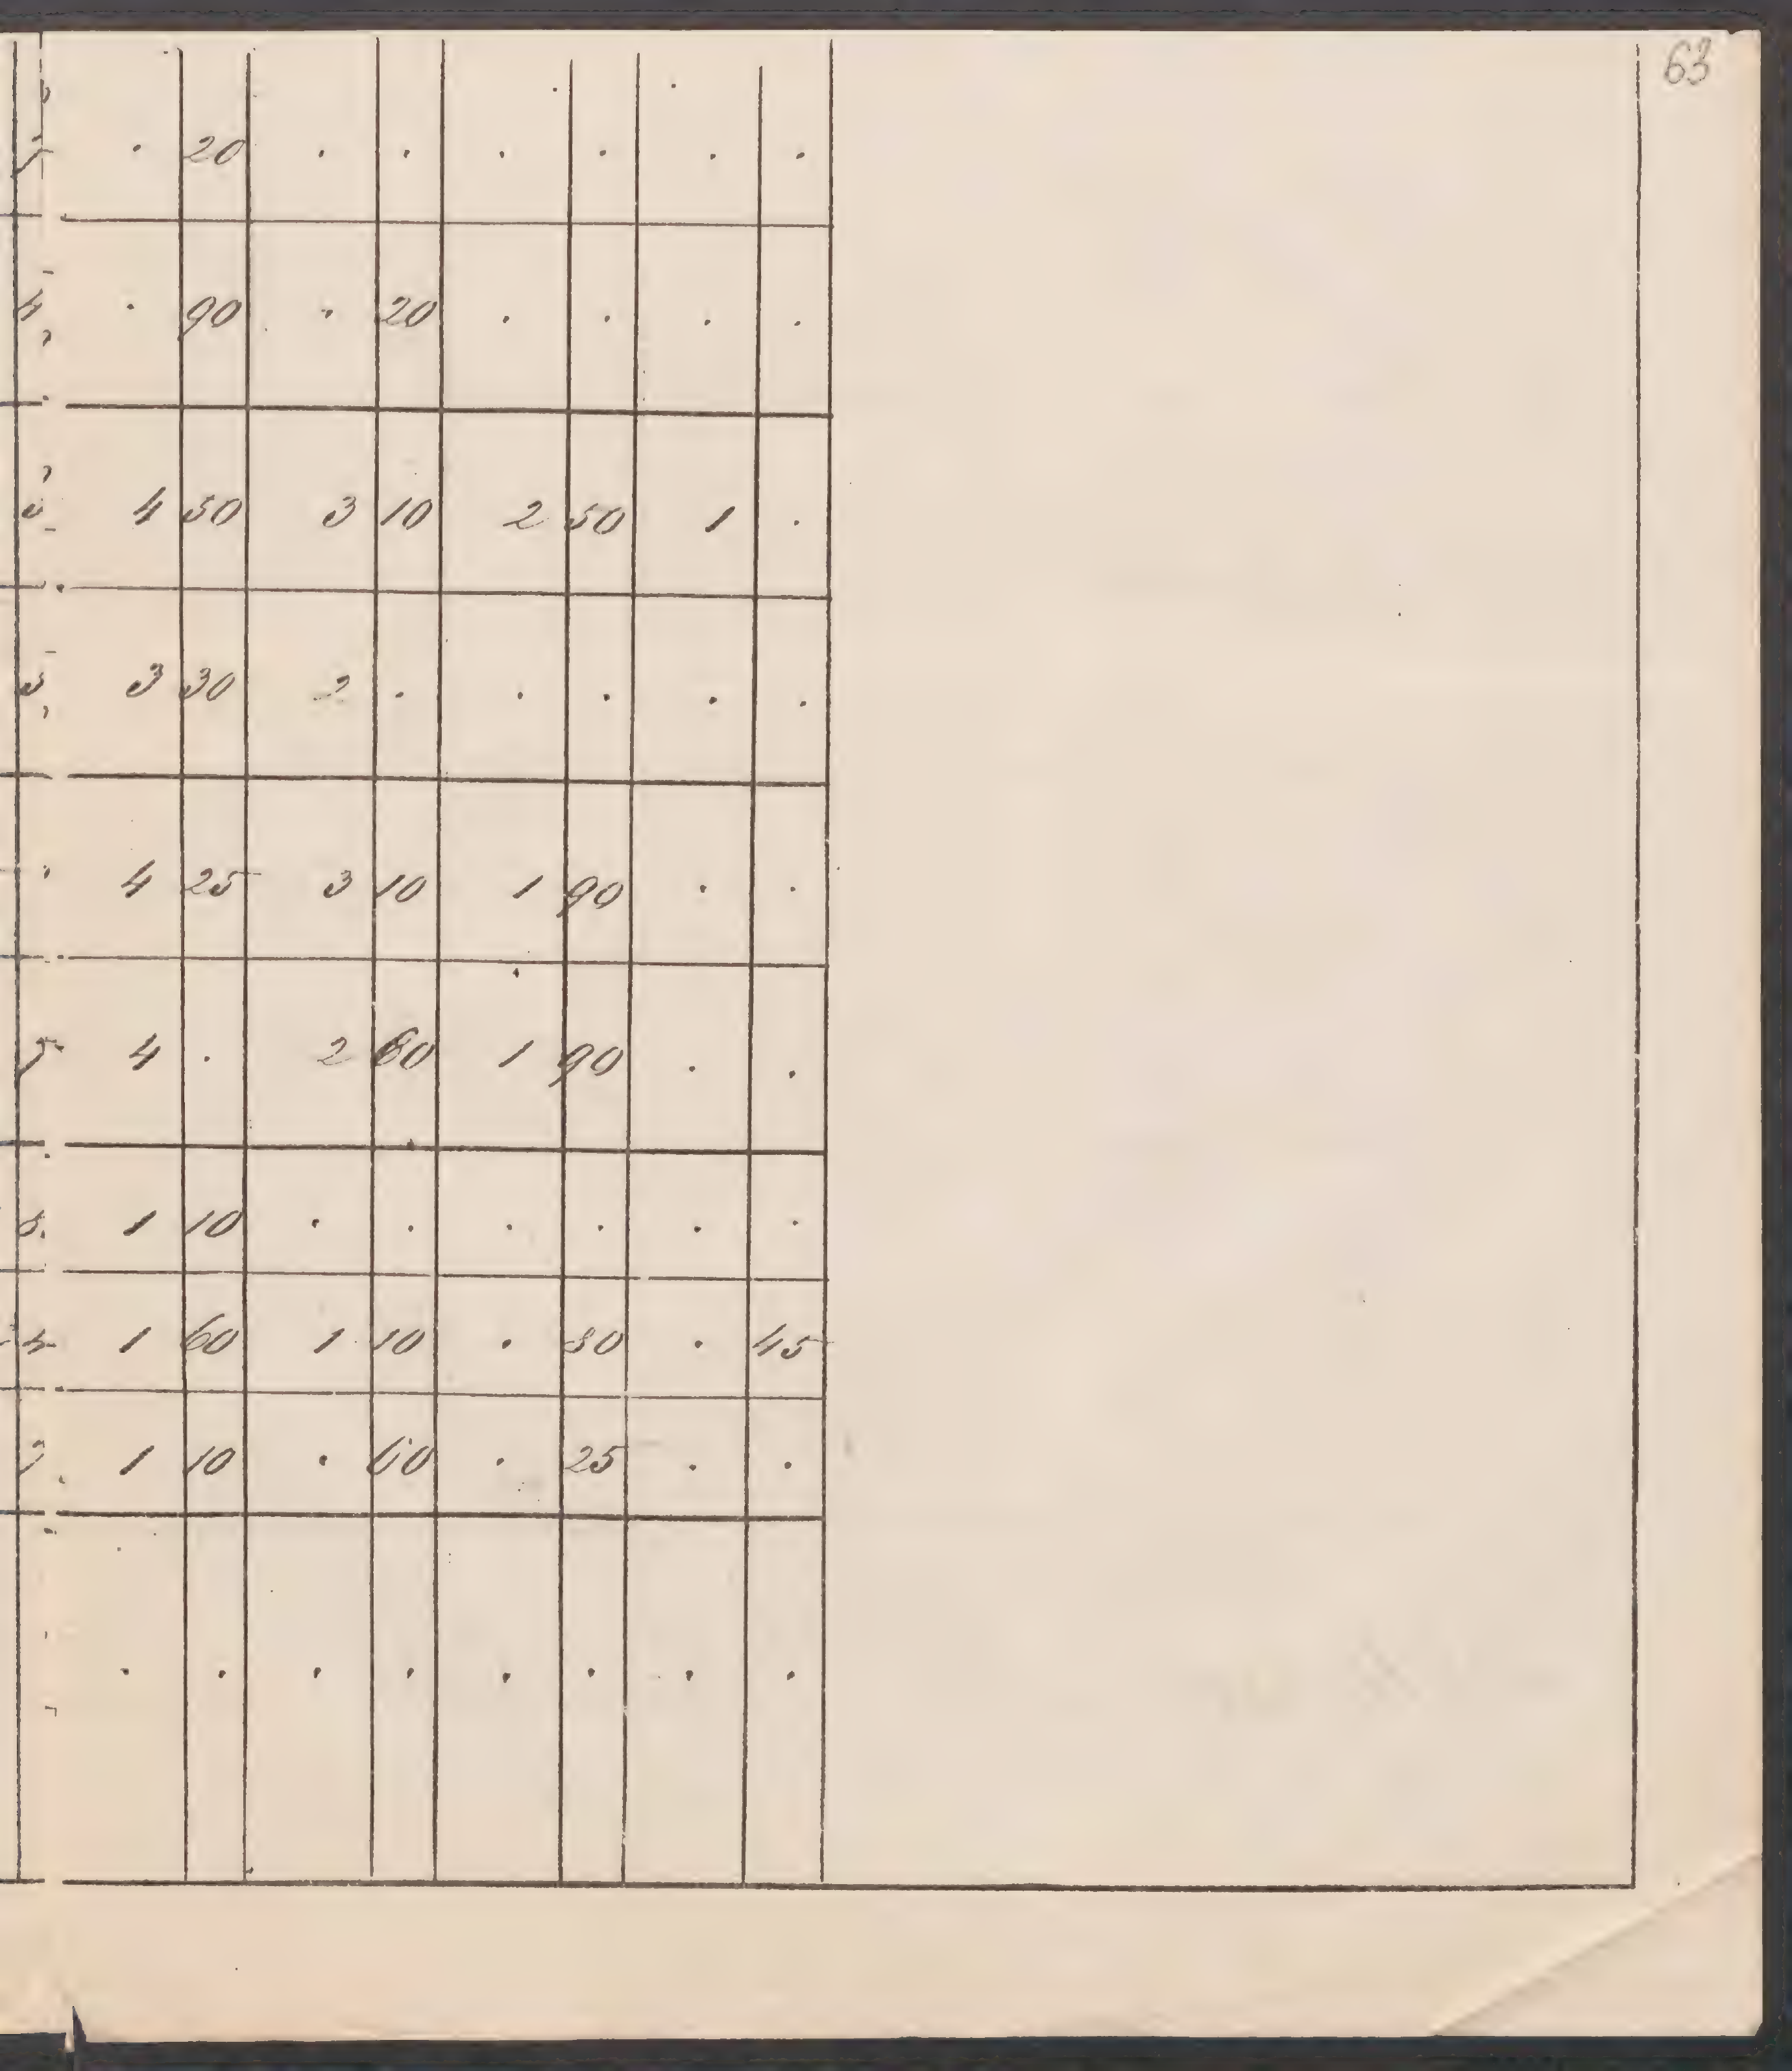 63
. 20 . . . . . .
. 90 . 20 . . . .
4 50 3 10 2 50 1 .
3 30 2 . . . . .
4 25 3 10 1 90 . .
4 . 2 80 1 90 . .
1 10 . . . . . .
1 60 1 10 . 80 . 45
1 10 . 60 . 25 . .
. . . . . . . .